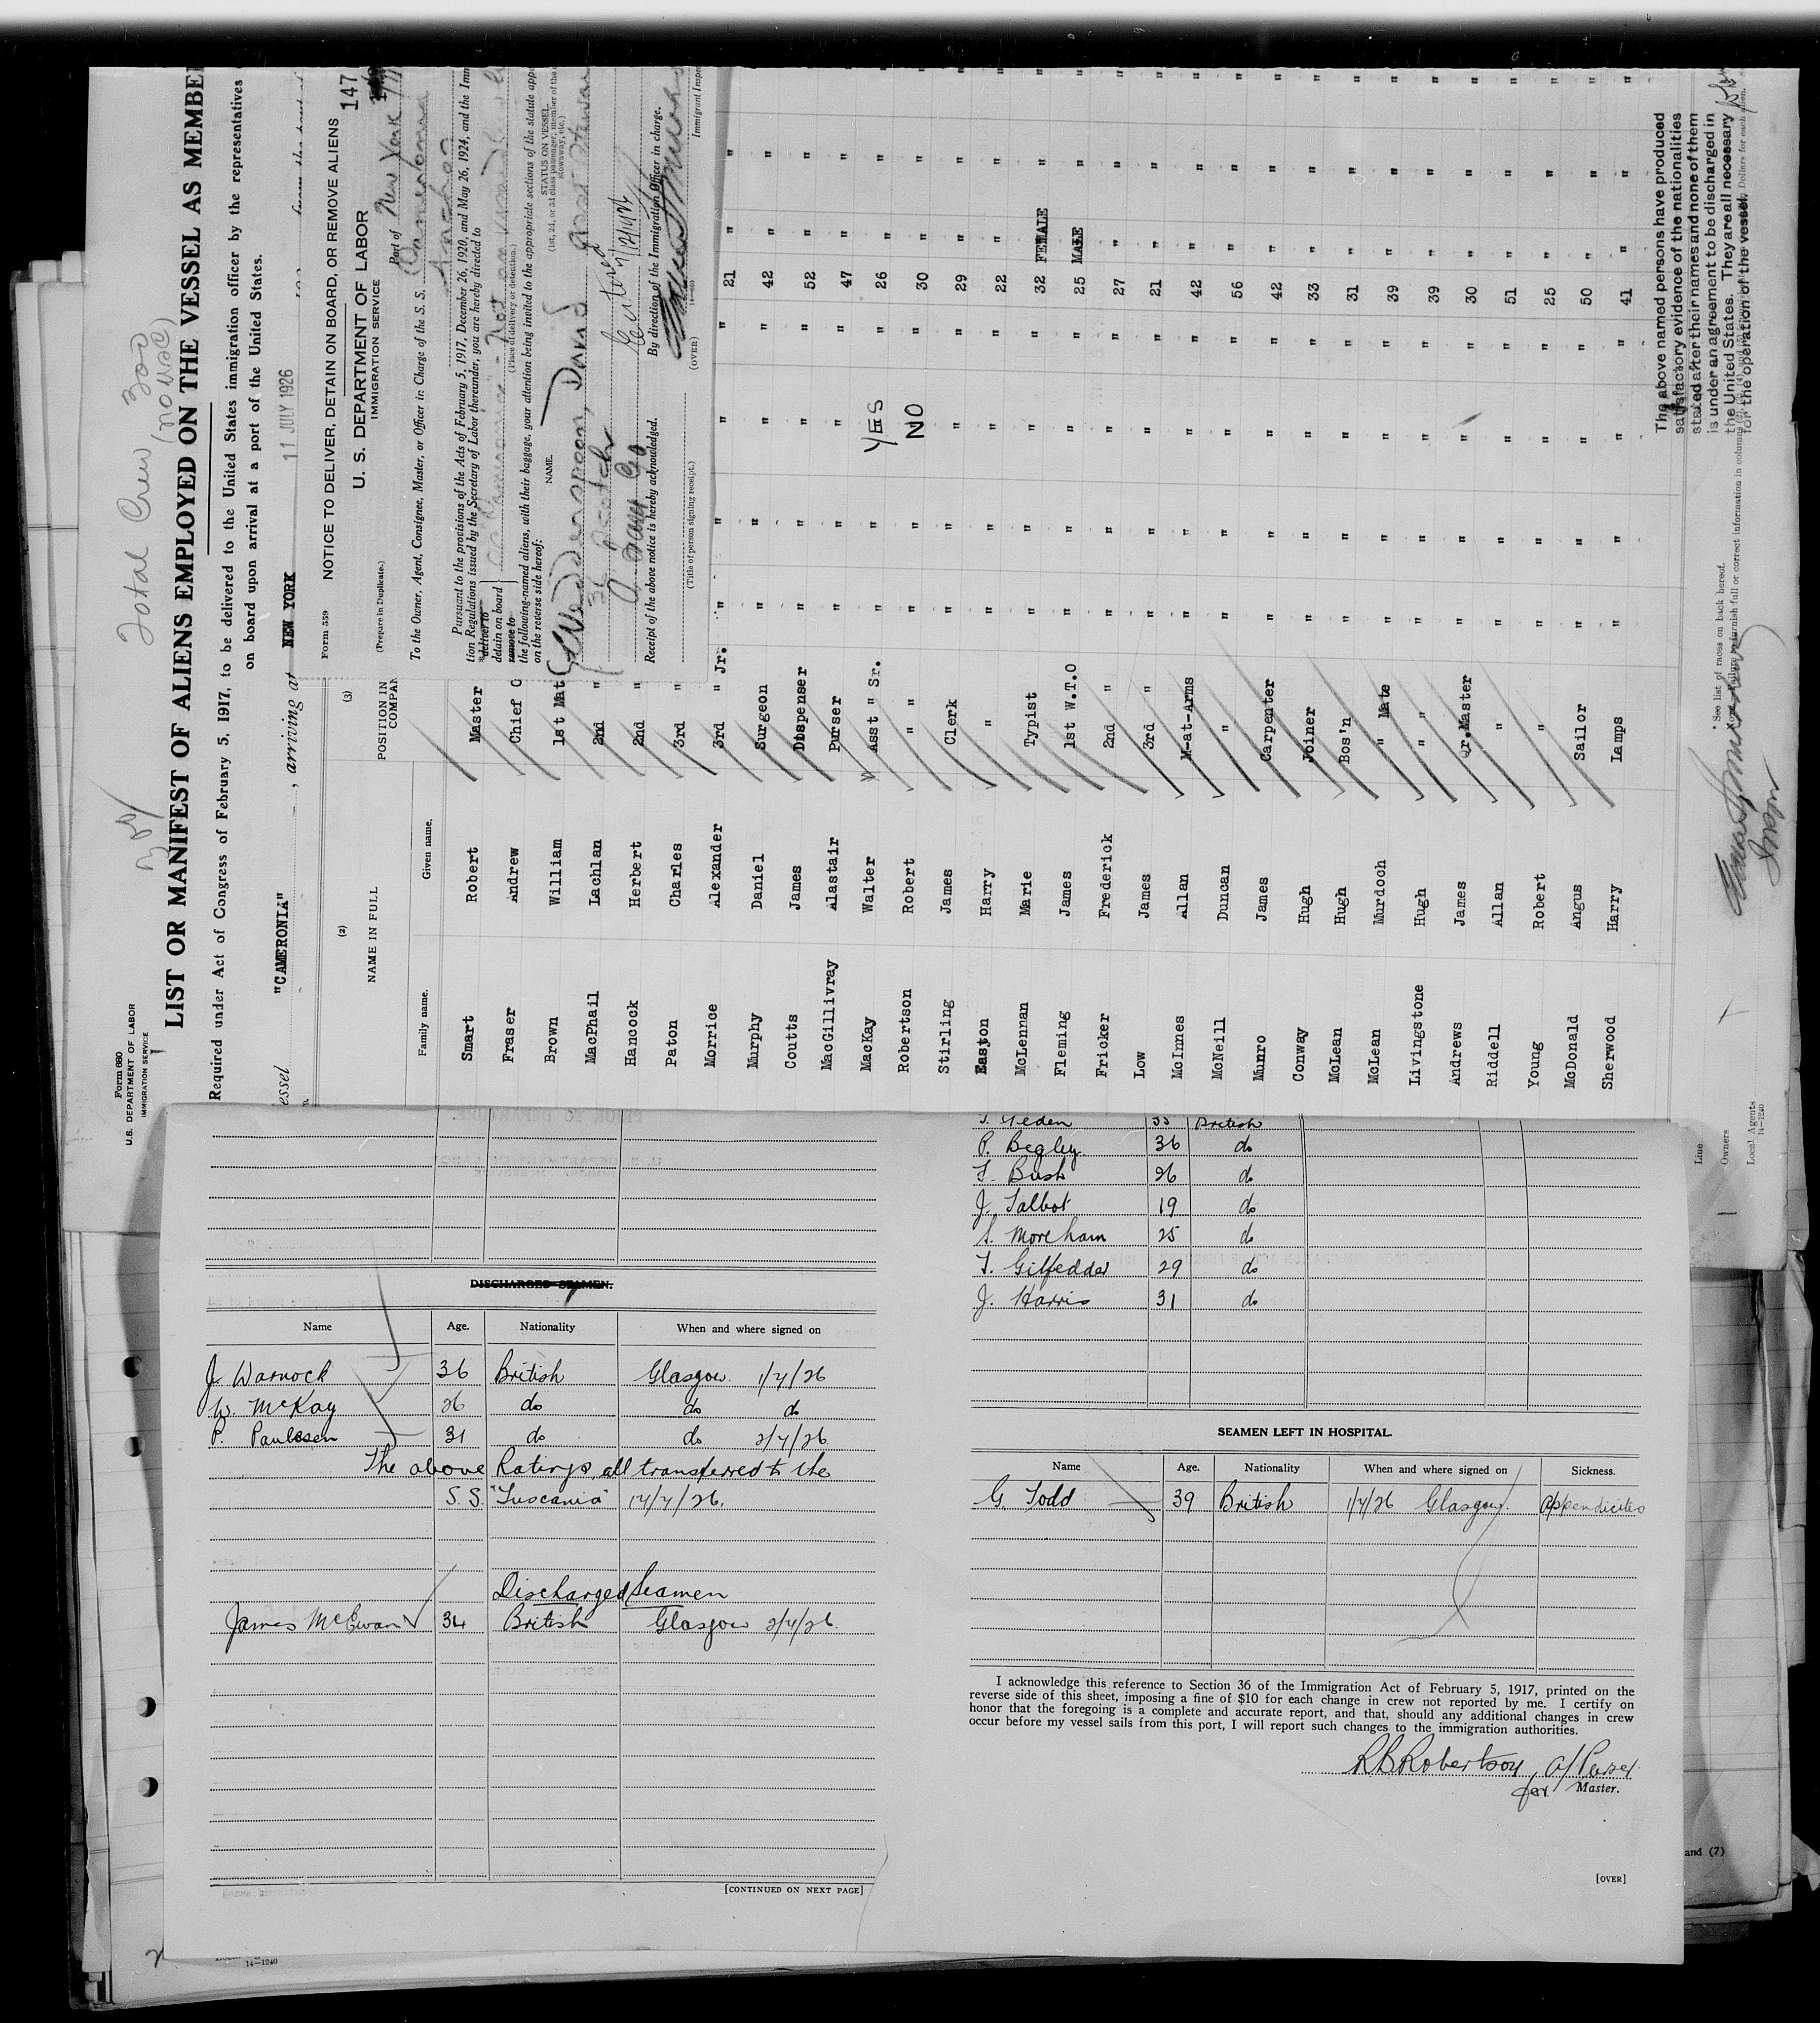 Total Crew 300
(no wsc)
Form 680
U.S. DEPARTMENT OF LABOR
IMMIGRATION SERVICE
LIST OR MANIFEST OF ALIENS EMPLOYED ON THE VESSEL AS MEMBE
Required under Act of Congress of February 5, 1917, to be delivered to the United States immigration officer by the representatives
on board upon arrival at a port of the United States.
essel "CAMERONIA" , arriving at NEW YORK 11 JULY 1926
Form 559
NOTICE TO DELIVER, DETAIN ON BOARD, OR REMOVE ALIENS 147
U. S. DEPARTMENT OF LABOR
IMMIGRATION SERVICE
(Prepare in Duplicate.)
Port of New York
To the Owner, Agent, Consignee, Master, or Officer in Charge of the S. S. Cameronia
Anchor
Pursuant to the provisions of the Acts of February 5, 1917, December 26, 1920, and May 26, 1924, and the Imm
tion Regulations issued by the Secretary of Labor thereunder, you are hereby directed to
deliver to
detain on board
remove to
(Place of delivery or detention.)
the following-named aliens, with their baggage, your attention being invited to the appropriate sections of the statute appe
on the reverse side hereof:
NAME.
STATUS ON VESSEL
(1st, 2d, or 3d class passenger; member of the c
stowaway, etc.)
Wedderspoon, David
36 Scotch
Receipt of the above notice is hereby acknowledged.
By direction of the Immigration Officer in charge.
(Title of person signing receipt.)
(OVER)
Immigrant Inspe
(2)
NAME IN FULL
(3)
POSITION IN
COMPAN
Family name. Given name.
Smart Robert Master
Fraser Andrew Chief O
Brown William 1st Mat
MacPhail Lachlan 2nd "
Hancock Herbert 2nd "
Paton Charles 3rd "
Morrice Alexander 3rd " Jr. " " " " 21 " "
Murphy Daniel Surgeon " " " " 42 " "
Coutts James Dispenser " " " " 52 " "
MacGillivray Alastair Purser " " " " 47 " "
MacKay Walter Asst " Sr. " " YES " 26 " "
Robertson Robert " " " " NO " 30 " "
Stirling James Clerk " " " " 29 " "
Easton Harry " " " " " 22 " "
McLennan Marie Typist " " " " 32 FEMALE "
Fleming James 1st W.T.O " " " " 25 MALE "
Fricker Frederick 2nd " " " " " 27 " "
Low James 3rd " " " " " 21 " "
McInnes Allan M-at-Arms " " " " 42 " "
McNeill Duncan " " " " " 56 " "
Munro James Carpenter " " " " 42 " "
Conway Hugh Joiner " " " " 33 " "
McLean Hugh Bos'n " " " " 31 " "
McLean Murdoch " Mate " " " " 39 " "
Livingstone Hugh " " " " " " 39 " "
Andrews James Qr.Master " " " " 30 " "
Riddell Allan " " " " " 51 " "
Young Robert " " " " " 25 " "
McDonald Angus Sailor " " " " 50 " "
Sherwood Harry Lamps " " " " 41 " "
The above named persons have produced
satisfactory evidence of the nationalities
stated after their names and none of them
is under an agreement to be discharged in
the United States. They are all necessary
for the operation of the vessel.
* See list of races on back hereof.
Line
Owners
Local Agents
14—1240
DISCHARGED SEAMEN.
Name Age. Nationality When and where signed on
J. Warnock 36 British Glasgow 1/7/26
W. McKay 26 do do do
P. Paulssen 31 do do 2/7/26
The above Ratings all transferred to the
S.S. "Tuscania" 17/7/26.
Discharged Seamen
James McEwan 34 British Glasgow 2/7/26.
[CONTINUED ON NEXT PAGE]
British
P. Begley 36 do
T. Bush 26 do
J. Talbot 19 do
S. Moreham 25 do
T. Gilfedder 29 do
J. Harris 31 do
SEAMEN LEFT IN HOSPITAL.
Name Age. Nationality When and where signed on Sickness.
G. Todd 39 British 1/7/26 Glasgow. Appendicites
I acknowledge this reference to Section 36 of the Immigration Act of February 5, 1917, printed on the
reverse side of this sheet, imposing a fine of $10 for each change in crew not reported by me. I certify on
honor that the foregoing is a complete and accurate report, and that, should any additional changes in crew
occur before my vessel sails from this port, I will report such changes to the immigration authorities.
R B Robertson a/ Purser
for Master.
[OVER]
and (7)
14—1240